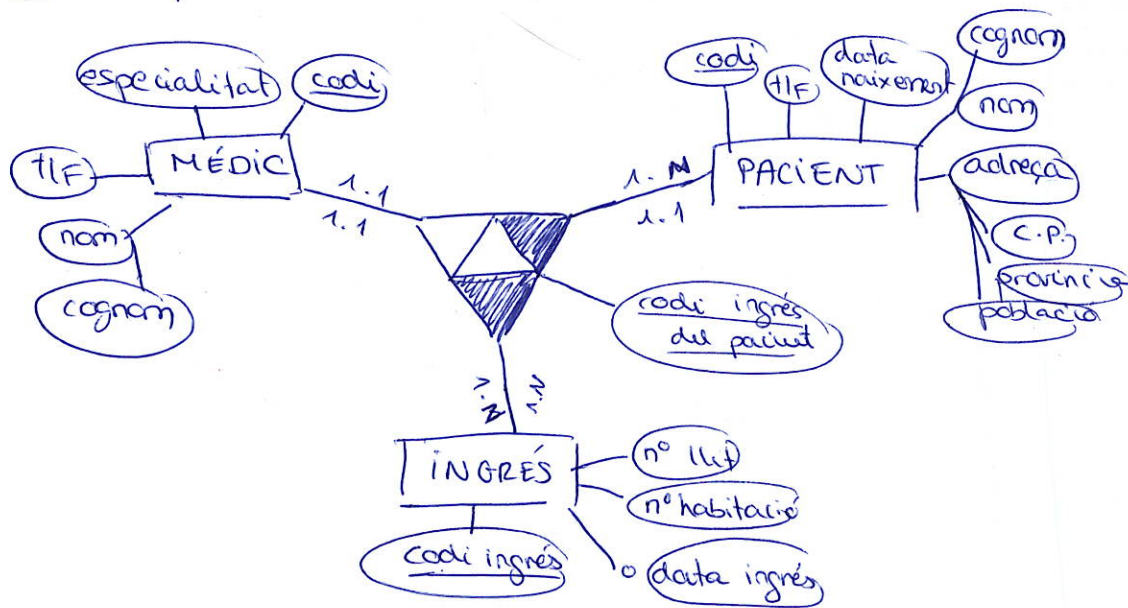 especialitat
codi
tlf
MÉDIC
nom
cognom
1.1
1.1
codi
tlf
data
naixement
cognom
nom
PACIENT
adreça
C.P.
província
població
1.N
1.1
codi ingrés
del pacient
1.N
1.N
INGRÉS
nº llit
nº habitació
codi ingrés
data ingrés